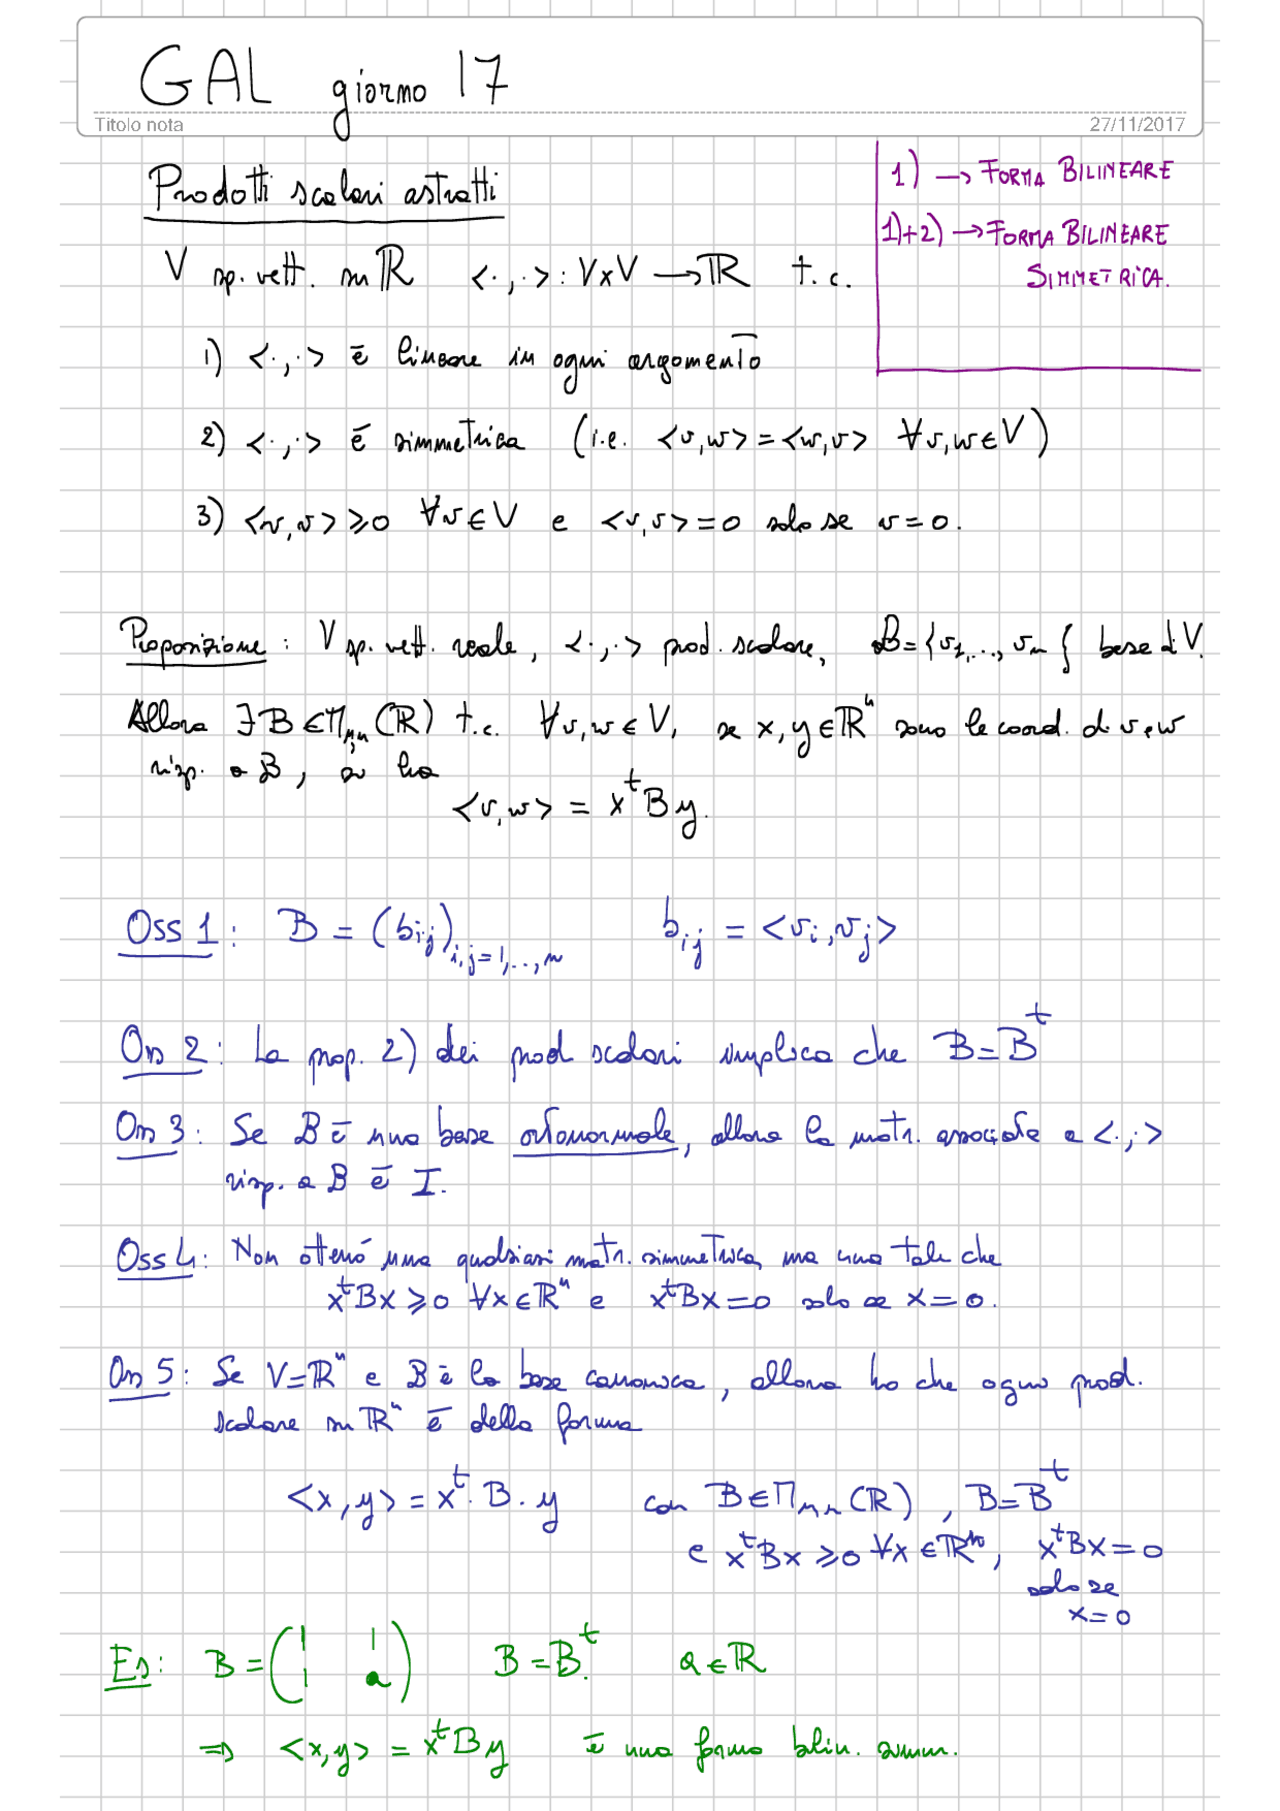 GAL giorno 17
Titolo nota
27/11/2017
Prodotti scalari astratti
1) → FORMA BILINEARE
1)+2) → FORMA BILINEARE
SIMMETRICA.
V sp. vett. su ℝ <·,·> : V×V → ℝ t.c.
1) <·,·> è lineare in ogni argomento
2) <·,·> è simmetrica (i.e. <v,w> = <w,v> ∀v,w∈V)
3) <v,v> ≥ 0 ∀v∈V e <v,v> = 0 solo se v = 0.
Proposizione: V sp. vett. reale, <·,·> prod. scalare, ℬ = {v₁,...,vₙ} base di V.
Allora ∃ B ∈ Mₙ,ₙ(ℝ) t.c. ∀v,w ∈ V, se x,y ∈ ℝⁿ sono le coord. di v e w
risp. a ℬ, si ha
<v,w> = xᵗBy.
Oss 1: B = (bᵢⱼ)ᵢ,ⱼ₌₁,..,ₙ bᵢⱼ = <vᵢ,vⱼ>
Oss 2: La prop. 2) dei prod scalari implica che B = Bᵗ
Oss 3: Se ℬ è una base ortonormale, allora la matr. associata a <·,·>
risp. a ℬ è I.
Oss 4: Non otterrò una qualsiasi matr. simmetrica, ma una tale che
xᵗBx ≥ 0 ∀x∈ℝⁿ e xᵗBx = 0 solo se x = 0.
Oss 5: Se V = ℝⁿ e ℬ è la base canonica, allora ho che ogni prod.
scalare su ℝⁿ è della forma
<x,y> = xᵗ·B·y con B ∈ Mₙ,ₙ(ℝ), B = Bᵗ
e xᵗBx ≥ 0 ∀x ∈ ℝⁿ, xᵗBx = 0
solo se
x = 0
Es: B = (1 1 B = Bᵗ. a ∈ ℝ
1 a)
⇒ <x,y> = xᵗBy è una forma bilin. simm.